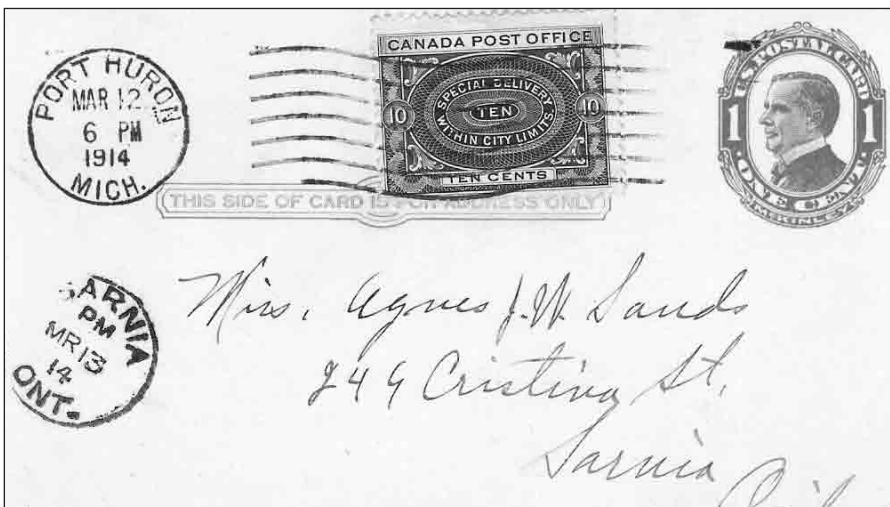 PORT HURON
MAR 12
6 PM
1914
MICH.
CANADA POST OFFICE
SPECIAL DELIVERY
10 TEN 10
WITHIN CITY LIMITS.
TEN CENTS
U.S. POSTAL CARD
1 1
ONE CENT
McKINLEY
THIS SIDE OF CARD IS FOR ADDRESS ONLY
SARNIA
PM
MR 13
14
ONT.
Mrs. Agnes J. W. Sands
249 Cristina St,
Sarnia